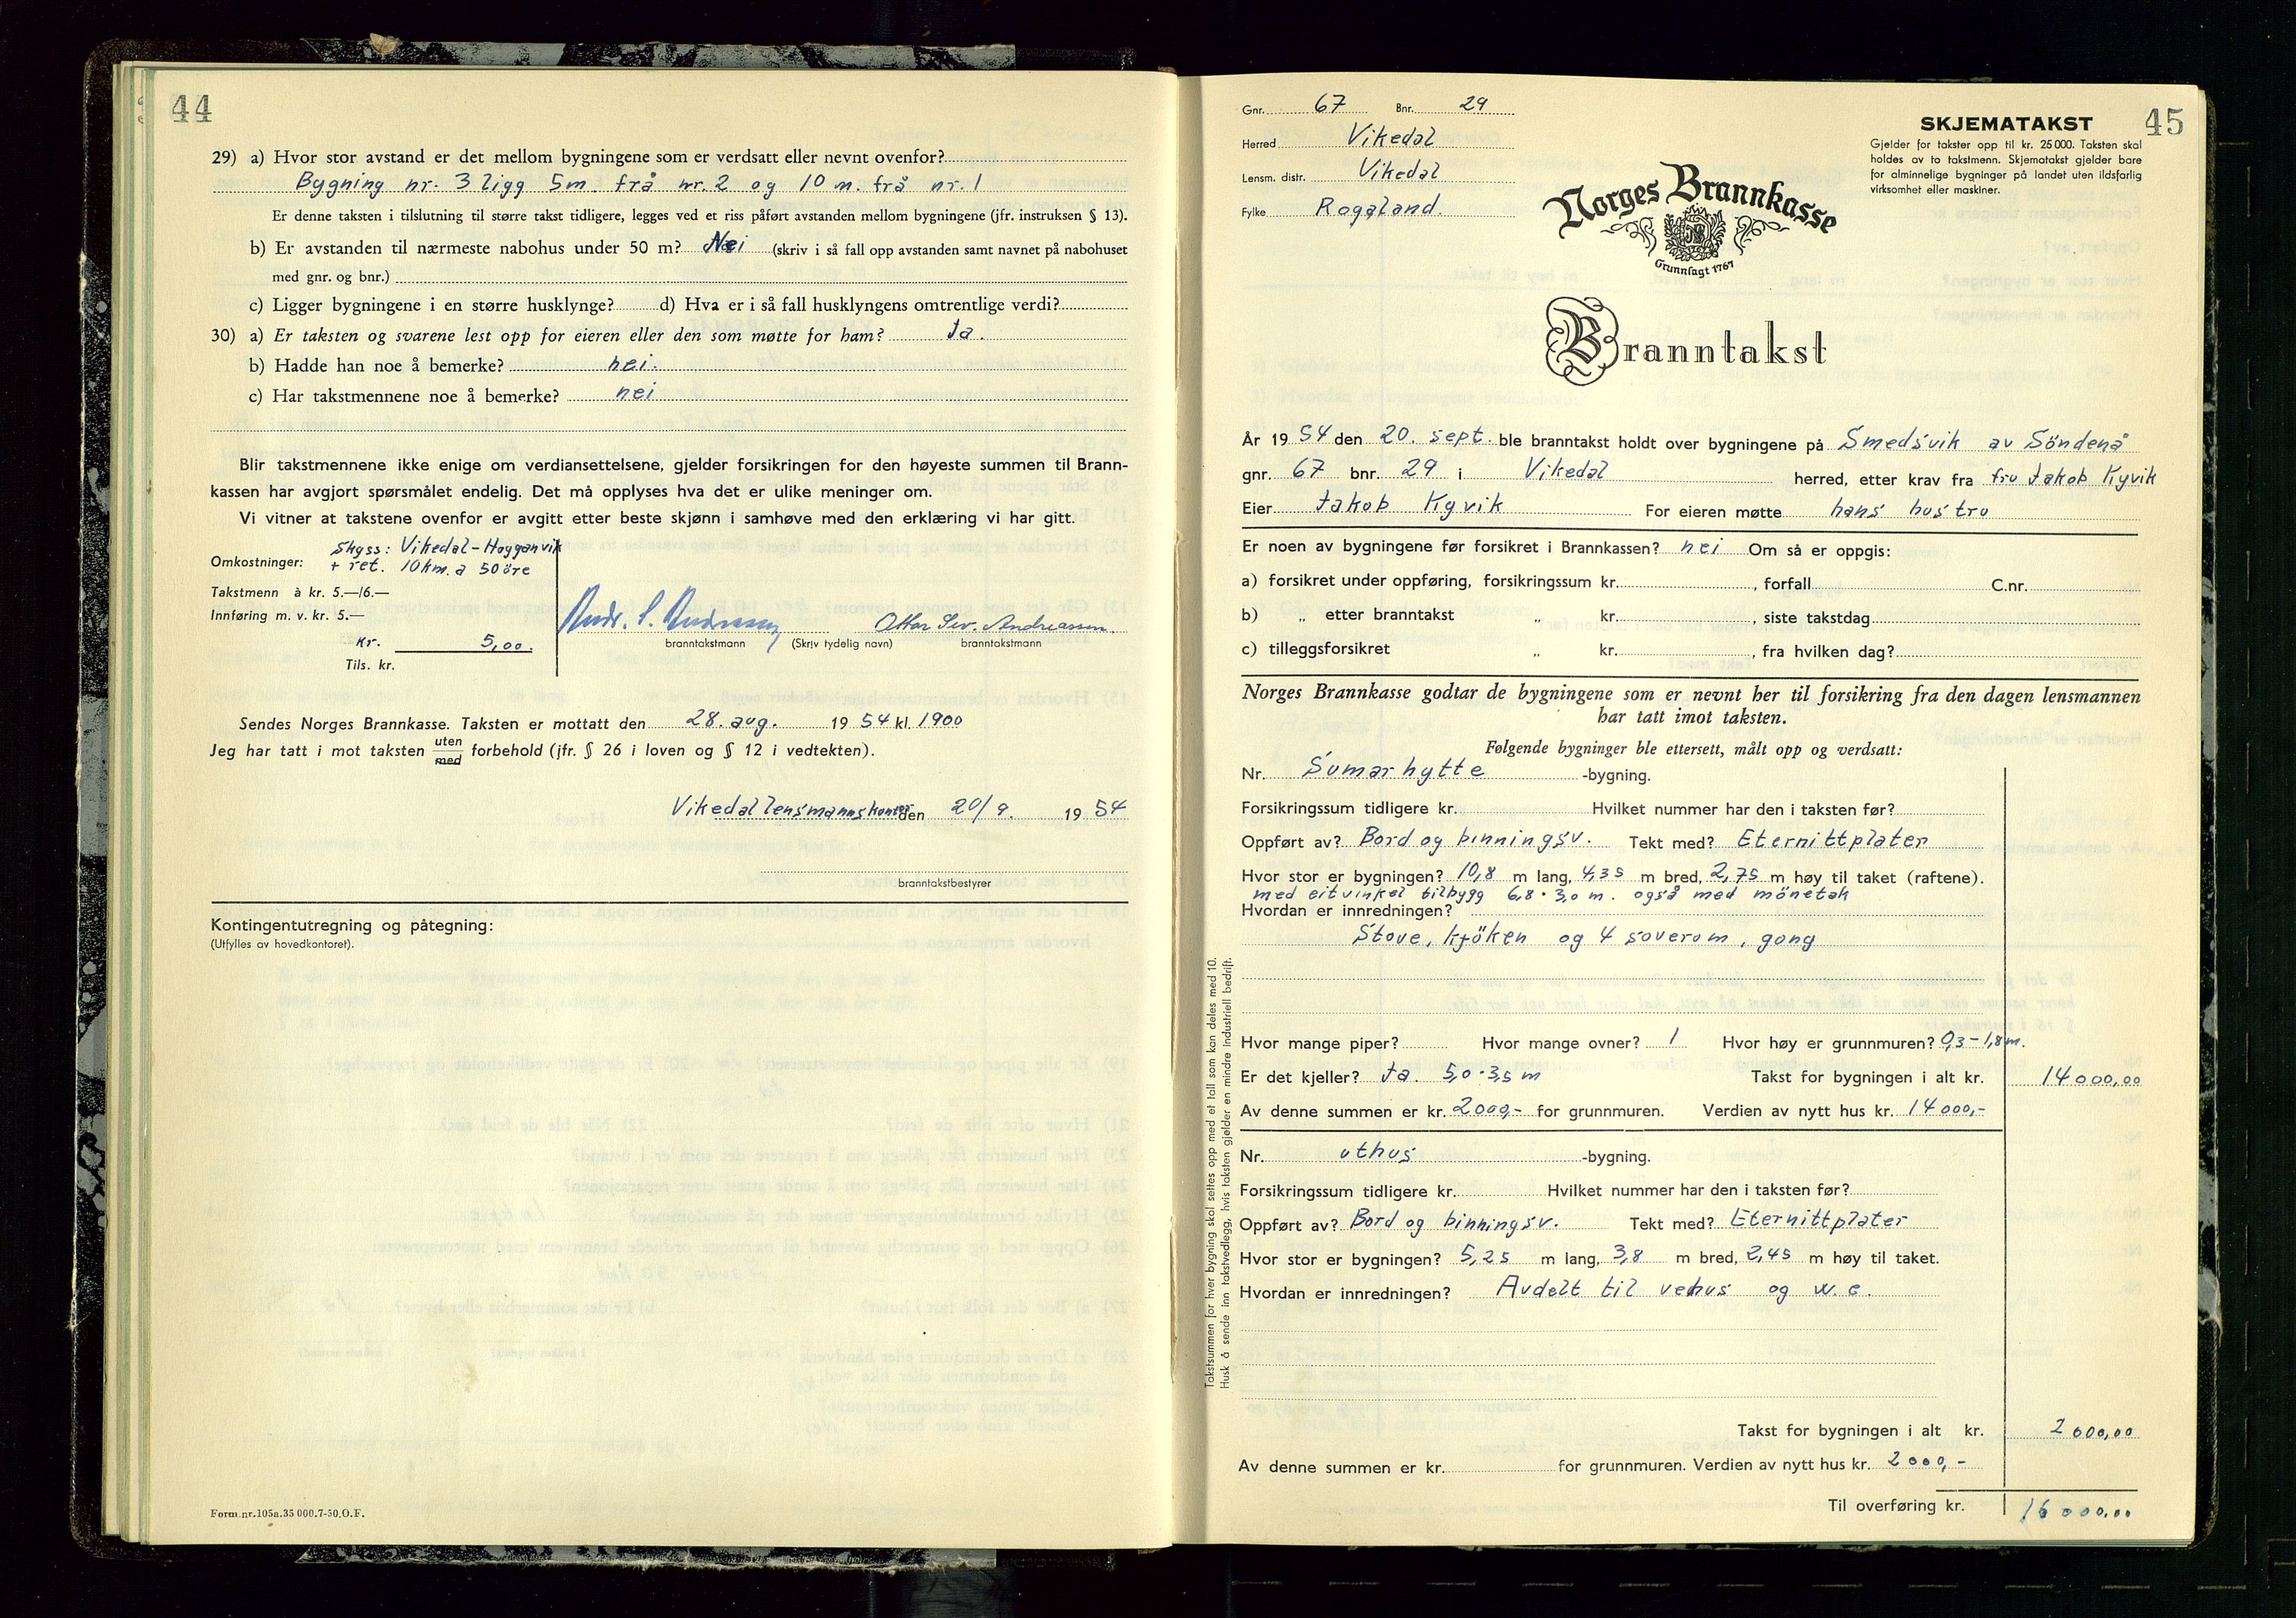 44
29) a) Hvor stor avstand er det mellom bygningene som er verdsatt eller nevnt ovenfor?
Bygning nr. 3 ligg 5m. frå nr. 2 og 10 m. frå nr. 1
Er denne taksten i tilslutning til større takst tidligere, legges ved et riss påført avstanden mellom bygningene (jfr. instruksen § 13).
b) Er avstanden til nærmeste nabohus under 50 m? Nei (skriv i så fall opp avstanden samt navnet på nabohuset
med gnr. og bnr.)
c) Ligger bygningene i en større husklynge? d) Hva er i så fall husklyngens omtrentlige verdi?
30) a) Er taksten og svarene lest opp for eieren eller den som møtte for ham? Ja.
b) Hadde han noe å bemerke? nei.
c) Har takstmennene noe å bemerke? nei
Blir takstmennene ikke enige om verdiansettelsene, gjelder forsikringen for den høyeste summen til Brann-
kassen har avgjort spørsmålet endelig. Det må opplyses hva det er ulike meninger om.
Vi vitner at takstene ovenfor er avgitt etter beste skjønn i samhøve med den erklæring vi har gitt.
Omkostninger: Skyss: Vikedal-Hogganvik
+ ret. 10km. a 50 öre
Takstmenn à kr. 5.—/6.—
Innføring m. v. kr. 5.—
Kr. 5,00.
Tils. kr.
Andr. S. Andreassen Ottar Sev. Andreassen.
branntakstmann (Skriv tydelig navn) branntakstmann
Sendes Norges Brannkasse. Taksten er mottatt den 28. aug. 1954 kl. 1900
Jeg har tatt i mot taksten uten med forbehold (jfr. § 26 i loven og § 12 i vedtekten).
Vikedal lensmannskontor den 20/9. 1954
branntakstbestyrer
Kontingentutregning og påtegning:
(Utfylles av hovedkontoret).
Form.nr.105a.35 000.7-50.O.F.
45
Gnr. 67 Bnr. 29
Herred Vikedal
Lensm. distr. Vikedal
Fylke Rogaland.
SKJEMATAKST
Gjelder for takster opp til kr. 25 000. Taksten skal
holdes av to takstmenn. Skjematakst gjelder bare
for alminnelige bygninger på landet uten ildsfarlig
virksomhet eller maskiner.
Norges Brannkasse
Grunnlagt 1767
Branntakst
År 1954 den 20. sept. ble branntakst holdt over bygningene på Smedsvik av Söndenå
gnr. 67 bnr. 29 i Vikedal herred, etter krav fra fru Jakob Kyvik
Eier Jakob Kyvik For eieren møtte hans hustru
Er noen av bygningene før forsikret i Brannkassen? nei Om så er oppgis:
a) forsikret under oppføring, forsikringssum kr. , forfall C.nr.
b) „ etter branntakst „ kr. , siste takstdag
c) tilleggsforsikret „ kr. , fra hvilken dag?
Norges Brannkasse godtar de bygningene som er nevnt her til forsikring fra den dagen lensmannen
har tatt imot taksten.
Følgende bygninger ble ettersett, målt opp og verdsatt:
Nr. Sumarhytte -bygning.
Forsikringssum tidligere kr. Hvilket nummer har den i taksten før?
Oppført av? Bord og binningsv. Tekt med? Eternittplater
Hvor stor er bygningen? 10,8 m lang, 4,35 m bred, 2,75 m høy til taket (raftene).
med eit vinkel tilbygg 6,8 · 3,0 m. også med mönetak
Hvordan er innredningen?
Stove, kjöken og 4 soverom, gang
Hvor mange piper? Hvor mange ovner? 1 Hvor høy er grunnmuren? 0,3 - 1,8m.
Er det kjeller? Ja. 5,0 · 3,5 m Takst for bygningen i alt kr. 14000,00
Av denne summen er kr. 2000,- for grunnmuren. Verdien av nytt hus kr. 14000,-
Nr. uthus -bygning.
Forsikringssum tidligere kr. Hvilket nummer har den i taksten før?
Oppført av? Bord og binningsv. Tekt med? Eternittplater
Hvor stor er bygningen? 5,25 m lang, 3,8 m bred, 2,45 m høy til taket.
Hvordan er innredningen? Avdelt til vehus og w.c.
Takst for bygningen i alt kr. 2000,00
Av denne summen er kr. for grunnmuren. Verdien av nytt hus kr. 2000,-
Til overføring kr. 16000,00
Takstsummen for hver bygning skal settes opp med et tall som kan deles med 10.
Husk å sende inn takstvedlegg, hvis taksten gjelder en mindre industriell bedrift.